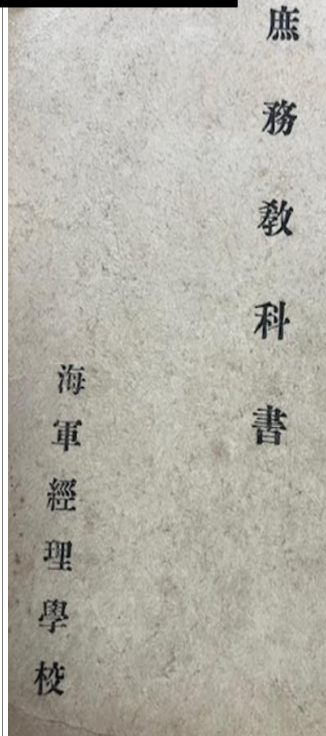 庶務教科書
海軍經理學校